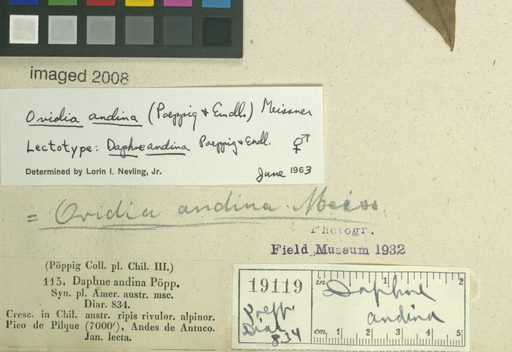 imaged 2008
Ovidia andina (Poeppig & Endl.) Meissner
Lectotype: Daphne andina Poeppig & Endl. ⚥
Determined by Lorin I. Nevling, Jr. June 1963
= Ovidia andina Meiss.
Photogr.
Field Museum 1932
(Pöppig Coll. pl. Chil. III.)
115. Daphne andina Pöpp.
Syn. pl. Amer. austr. msc.
Diar. 834.
Cresc. in Chil. austr. ripis rivulor. alpinor.
Pico de Pilque (7000'), Andes de Antuco.
Jan. lecta.
19119
Poepp.
Diar
834
in 1 2
Daphne
andina
cm. 1 2 3 4 5